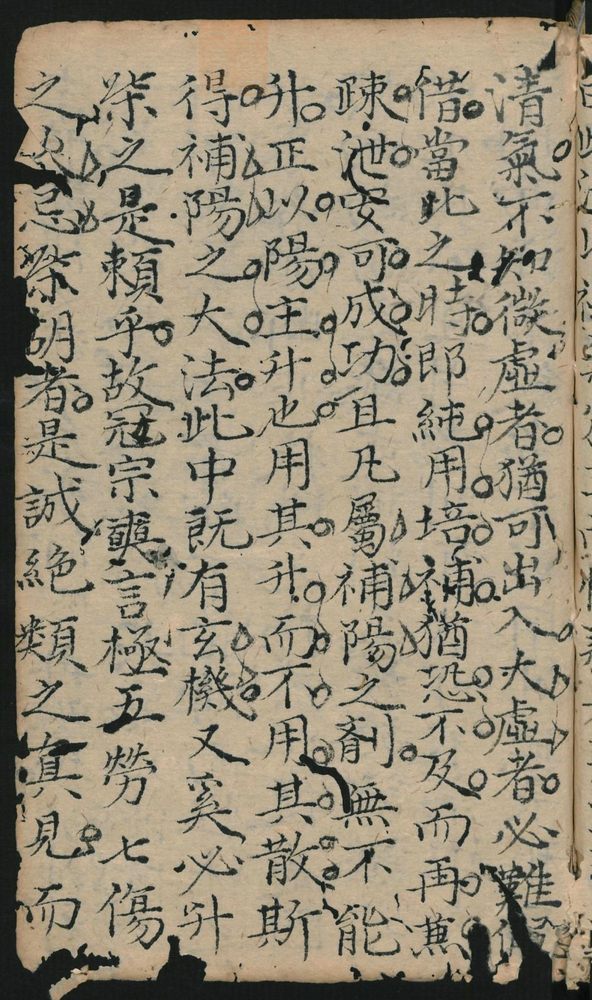 清氣不知微虛者猶可出入大虛者必難假
借當此之時即純用培補猶恐不及而再兼
疎泄安可成功且凡屬補陽之劑無不能
升正以陽主升也用其升而不用其散斯
得補陽之大法此中既有玄機又奚必升
柴之是賴乎故冦宗奭言極五勞七傷
之大忌柴胡者是誠絶類之真見而